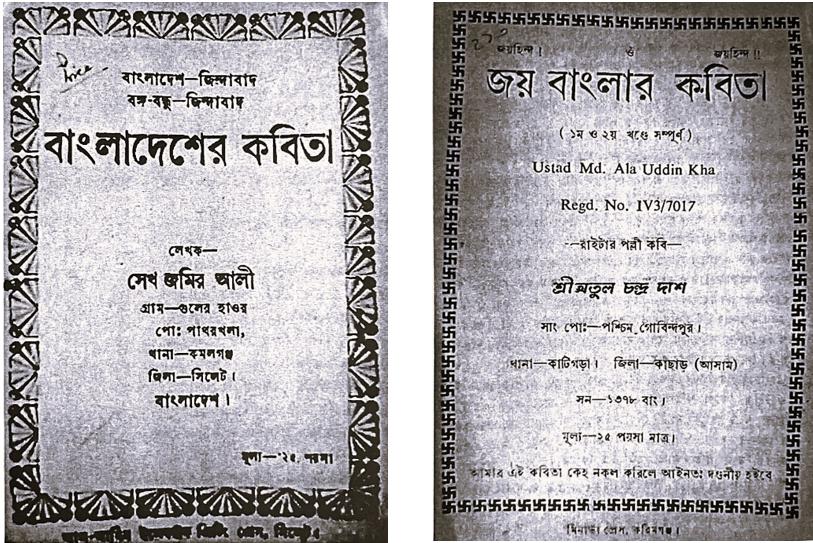 Price
বাংলাদেশ—জিন্দাবাদ
বঙ্গ-বন্ধু—জিন্দাবাদ
বাংলাদেশের কবিতা
লেখক—
সেখ জমির আলী
গ্রাম—গুলের হাওর
পো: পাথরখলা,
থানা—কমলগঞ্জ
জিলা—সিলেট।
বাংলাদেশ।
মূল্য—'২৫ পয়সা
প্রেস, সিলেট।
জয়হিন্দ। ওঁ জয়হিন্দ!!
জয় বাংলার কবিতা
(১ম ও ২য় খণ্ডে সম্পূর্ণ)
Ustad Md. Ala Uddin Kha
Regd. No. IV3/7017
—রাইটার পল্লী কবি—
শ্রীঅতুল চন্দ্র দাশ
সাং পো:—পশ্চিম গোবিন্দপুর।
থানা—কাটিগড়া। জিলা—কাছাড় (আসাম)
সন—১৩৭৮ বাং।
মূল্য—২৫ পয়সা মাত্র।
আমার এই কবিতা কেহ নকল করিলে আইনত: দণ্ডনীয় হইবে
প্রেস, করিমগঞ্জ।